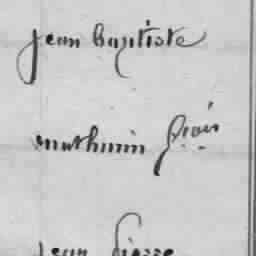 jean baptiste
mathurin frois
jean pierre